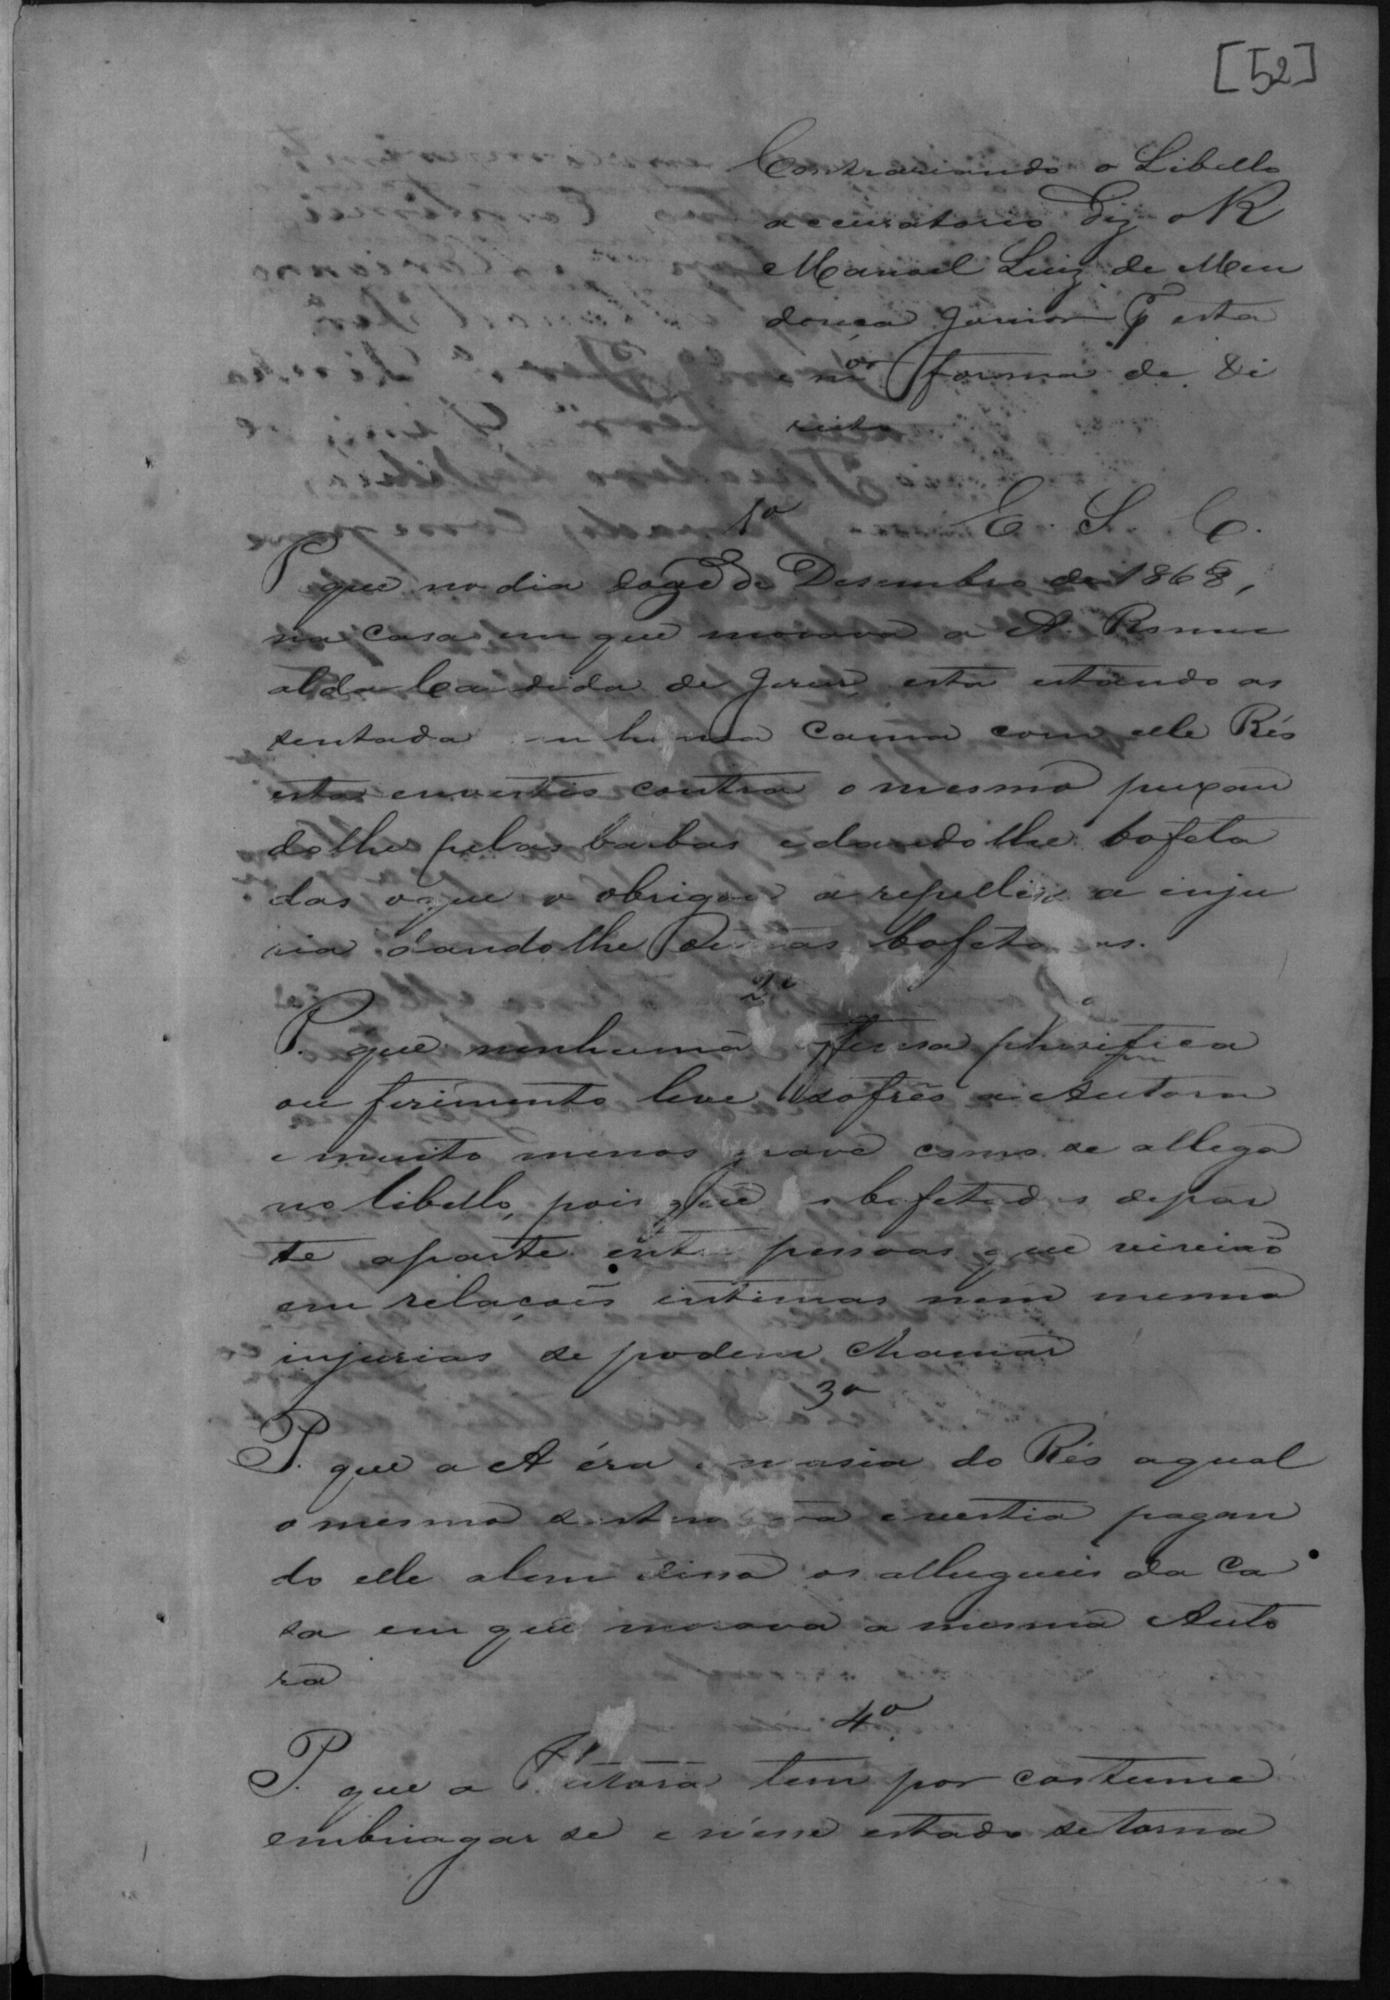 [52]
Contrariando o Libello
accusatorio Diz o R
Manoel Luiz de Men
donca Junior P esta
e m.or forma de Di
reito
E. S. C.
1º
P que no dia doze de Desembro de 1868,
na casa em que morava a A. Romu
alda Candida de Jesus, esta estando as
sentada em huma cama com elle Réo
esta envestio contra o mesmo puxan
dolhe pelas barbas e dandolhe bofeta
das oque o obrigou a repellir a inju
ria dandolhe bofetadas.
2º
P. que nenhuma offensa phisica
ou ferimento leve sofrêo a Autora
e muito menos grave como se allega
no libello, pois que as bofetadas depar
te aparte entre pessoas que viviaõ
em relaçoẽs intimas nem mesmo
injurias se podem chamar
3º
P. que a A éra amasia do Réo aqual
o mesmo sustentava e vestia pagan
do elle alem disso os allugueis da ca
sa em que morava a mesma Auto
ra
4º
P. que a Autora tem por costume
embriagar se e n'esse estado se torna